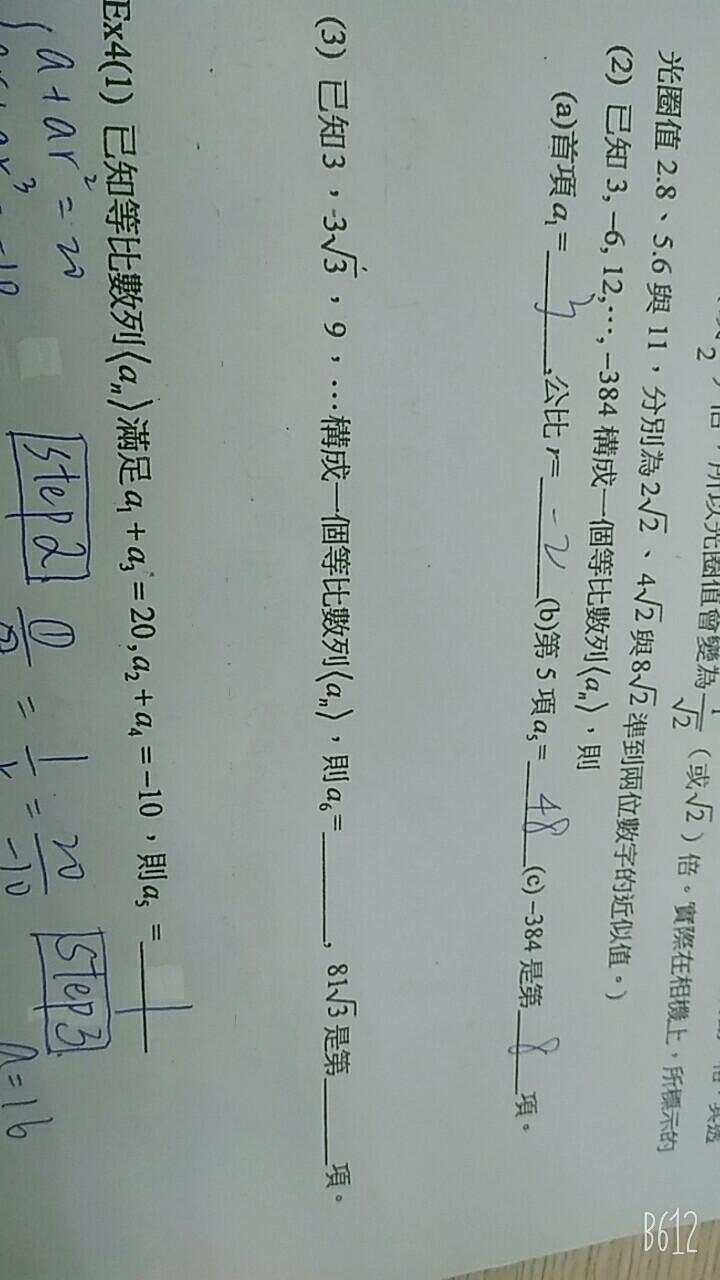 倍,所以光圈值會變為 1/√2 (或√2)倍。實際在相機上,所標示的
光圈值 2.8、5.6 與 11,分別為 2√2、4√2 與 8√2 準到兩位數字的近似值。)
(2) 已知 3, −6, 12, ⋯, −384 構成一個等比數列⟨aₙ⟩,則
(a)首項 a₁ = 3 ,公比 r= -2 (b)第 5 項 a₅ = 48 (c) −384 是第 8 項。
(3) 已知 3,-3√3,9,…構成一個等比數列⟨aₙ⟩,則 a₆ = ______, 81√3 是第______項。
Ex4(1) 已知等比數列⟨aₙ⟩滿足 a₁ + a₃ = 20, a₂ + a₄ = −10,則 a₅ = 1
a + ar² = 20 step2 ①/② = 1/r = 20/-10 step3 a=16
B612